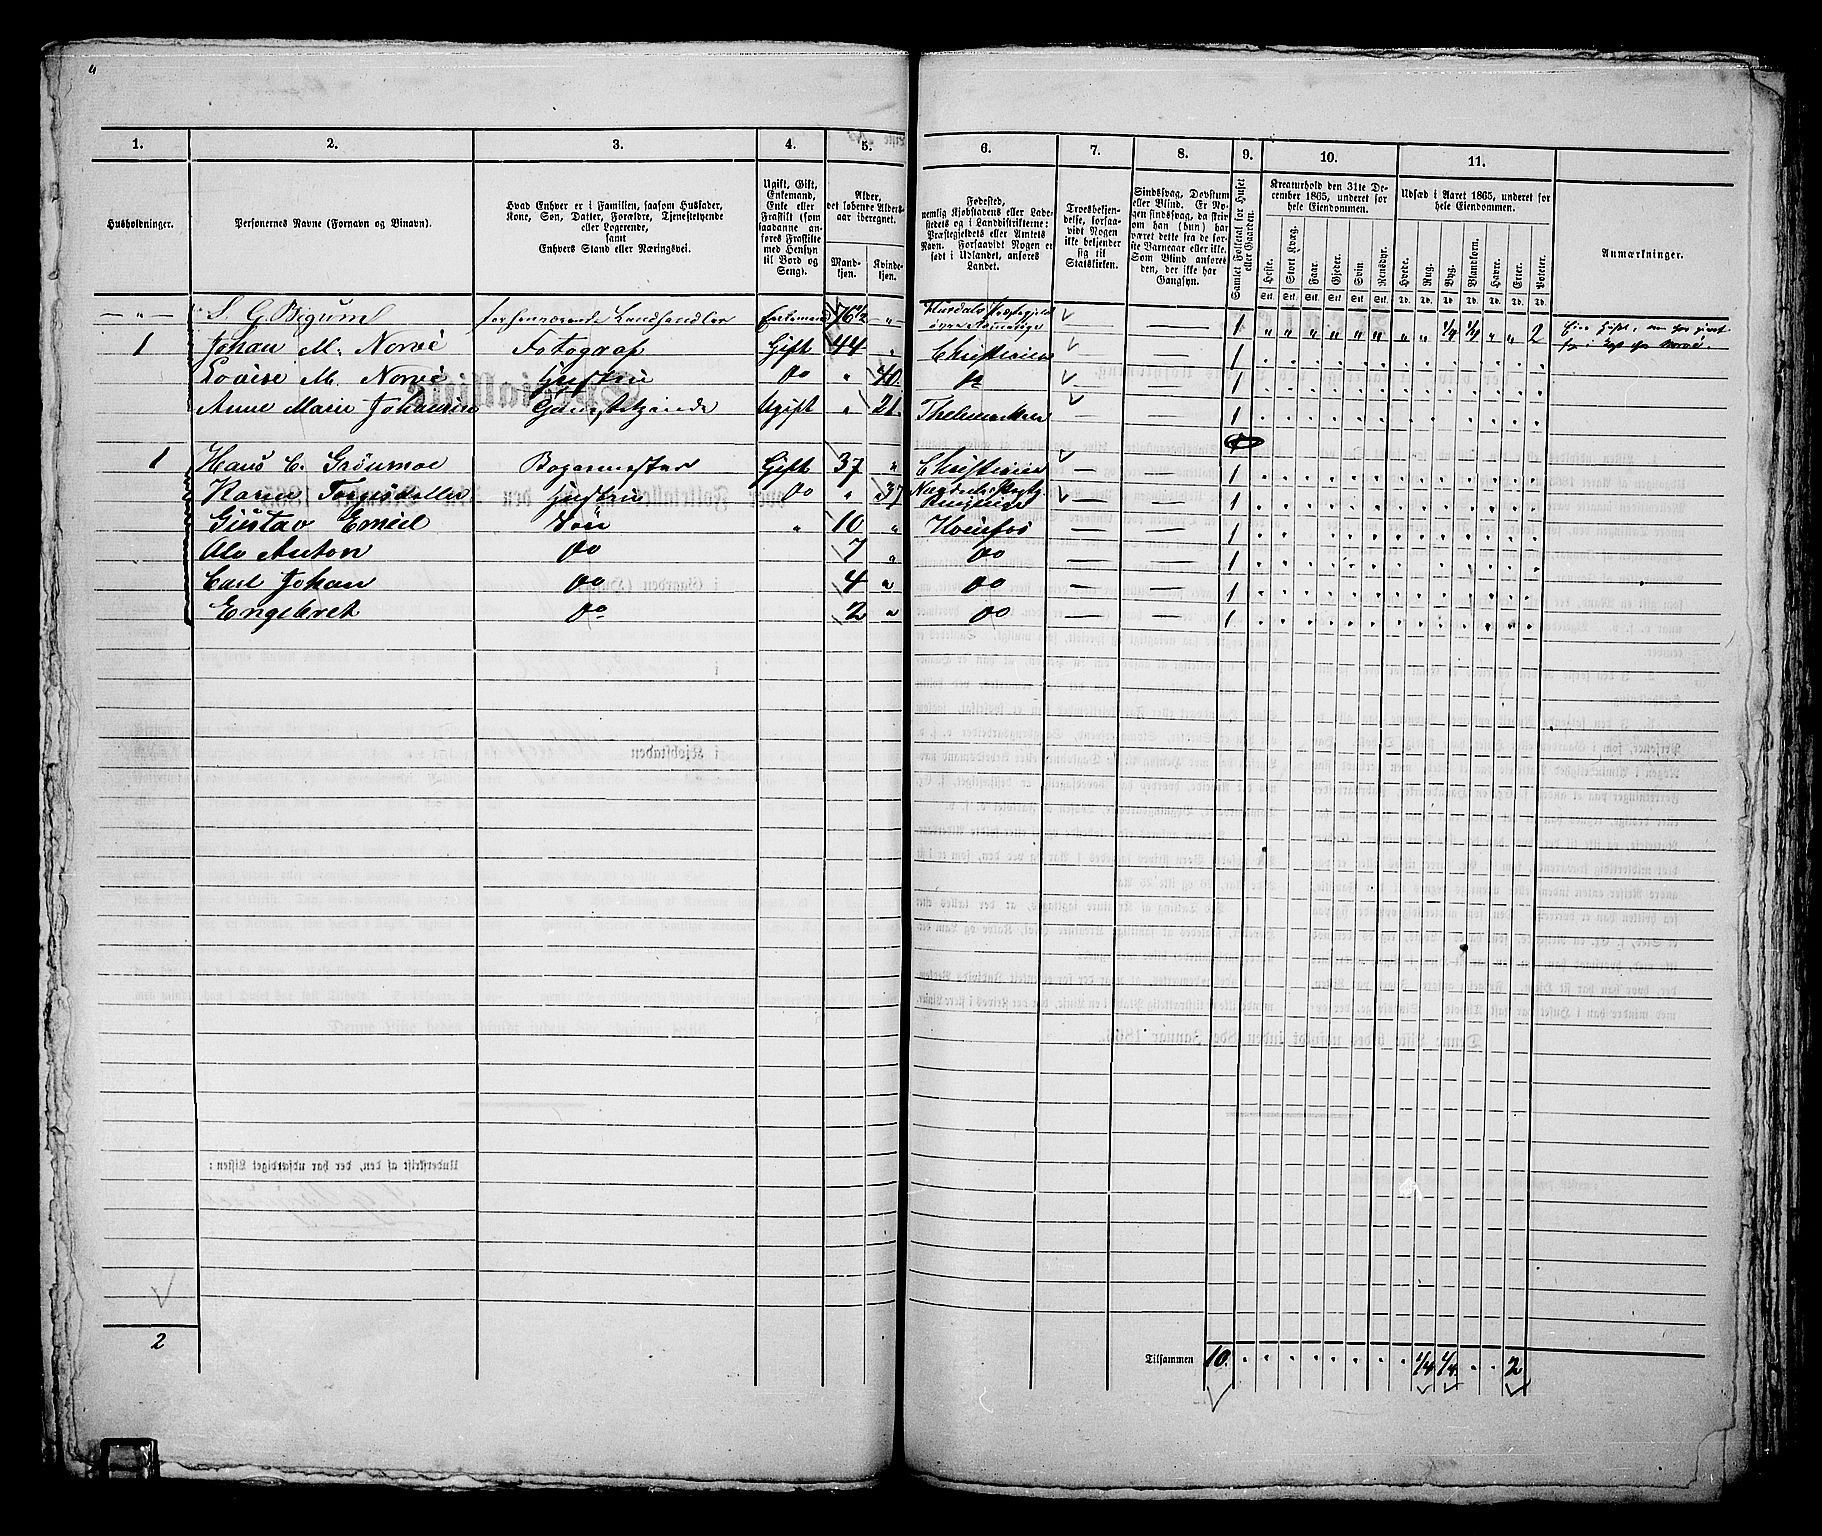 1. 2. 3. 4. 5. 6. 7. 8. 9. 10. 11.
Husholdninger.
Personernes Navne (Fornavn og Binavn).
Hvad Enhver er i Familien, saasom Husfader,
Kone, Søn, Datter, Forældre, Tjenestetyende
eller Logerende,
samt
Enhvers Stand eller Næringsvei.
Ugift, Gift,
Enkemand,
Enke eller
Fraskilt (som
saadanne an-
føres Fraskilte
med Hensyn
til Bord og
Seng).
Alder,
det løbende Alders-
aar iberegnet.
Mand-
kjøn.
Kvinde-
kjøn.
Fødested,
nemlig Kjøbstadens eller Lade-
stedets og i Landdistrikterne:
Præstegjeldets eller Amtets
Navn. Forsaavidt Nogen er
født i Udlandet, anføres
Landet.
Troesbekjen-
delse, forsaa-
vidt Nogen
ikke bekjender
sig til
Statskirken.
Sindssvag, Døvstum
eller Blind. Er No-
gen sindssvag, da skriv
om han (hun) har
været dette fra de før-
ste Barneaar eller ikke.
Som Blind anføres
den, der ikke har
Gangsyn.
Samlet Folketal for Huset
eller Gaarden.
Kreaturhold den 31te De-
cember 1865, underet for
hele Eiendommen.
Heste. Stort Kvæg. Faar. Gjeder. Svin. Rensdyr.
Stk. Stk. Stk. Stk. Stk. Stk.
Udsæd i Aaret 1865, underet for
hele Eiendommen.
Hvede. Rug. Byg. Blandkorn. Havre. Erter. Poteter.
Td. Td. Td. Td. Td. Td. Td.
Anmærkninger.
— „ — S. G. Begum forhenværende Landhandler Enkemand 76 „ Hurdals Præstegjeld — 1 „ „ „ „ „ „ „ „ 1/4 1/4 „ „ 2
1 Johan M. Norvé Fotograf Gift 44 „ Christiania — 1
Lovise M. Norvé Hustru do „ 40 do — 1
Anne Marie Johansen Ugift „ 21 Thelemarken — 1
1 Hans C. Grönmoe Bogermester Gift 37 „ Christiania — — 1
Karen Hustru do „ 37 — 1
Gustav Emiel Søn „ 10 „ Hönefos — — 1
Olo Anton do 7 „ do — — 1
Carl Johan do 4 „ do — — 1
Engebret do 2 „ do — — 1
2
Tilsammen 10 1/4 1/4 2